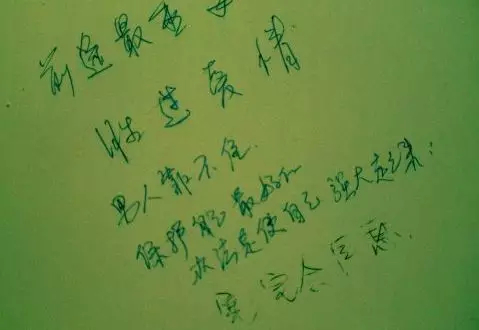 前途最重要
性生爱情
男人靠不住
保护自己最好的
办法是使自己强大起来:
完全